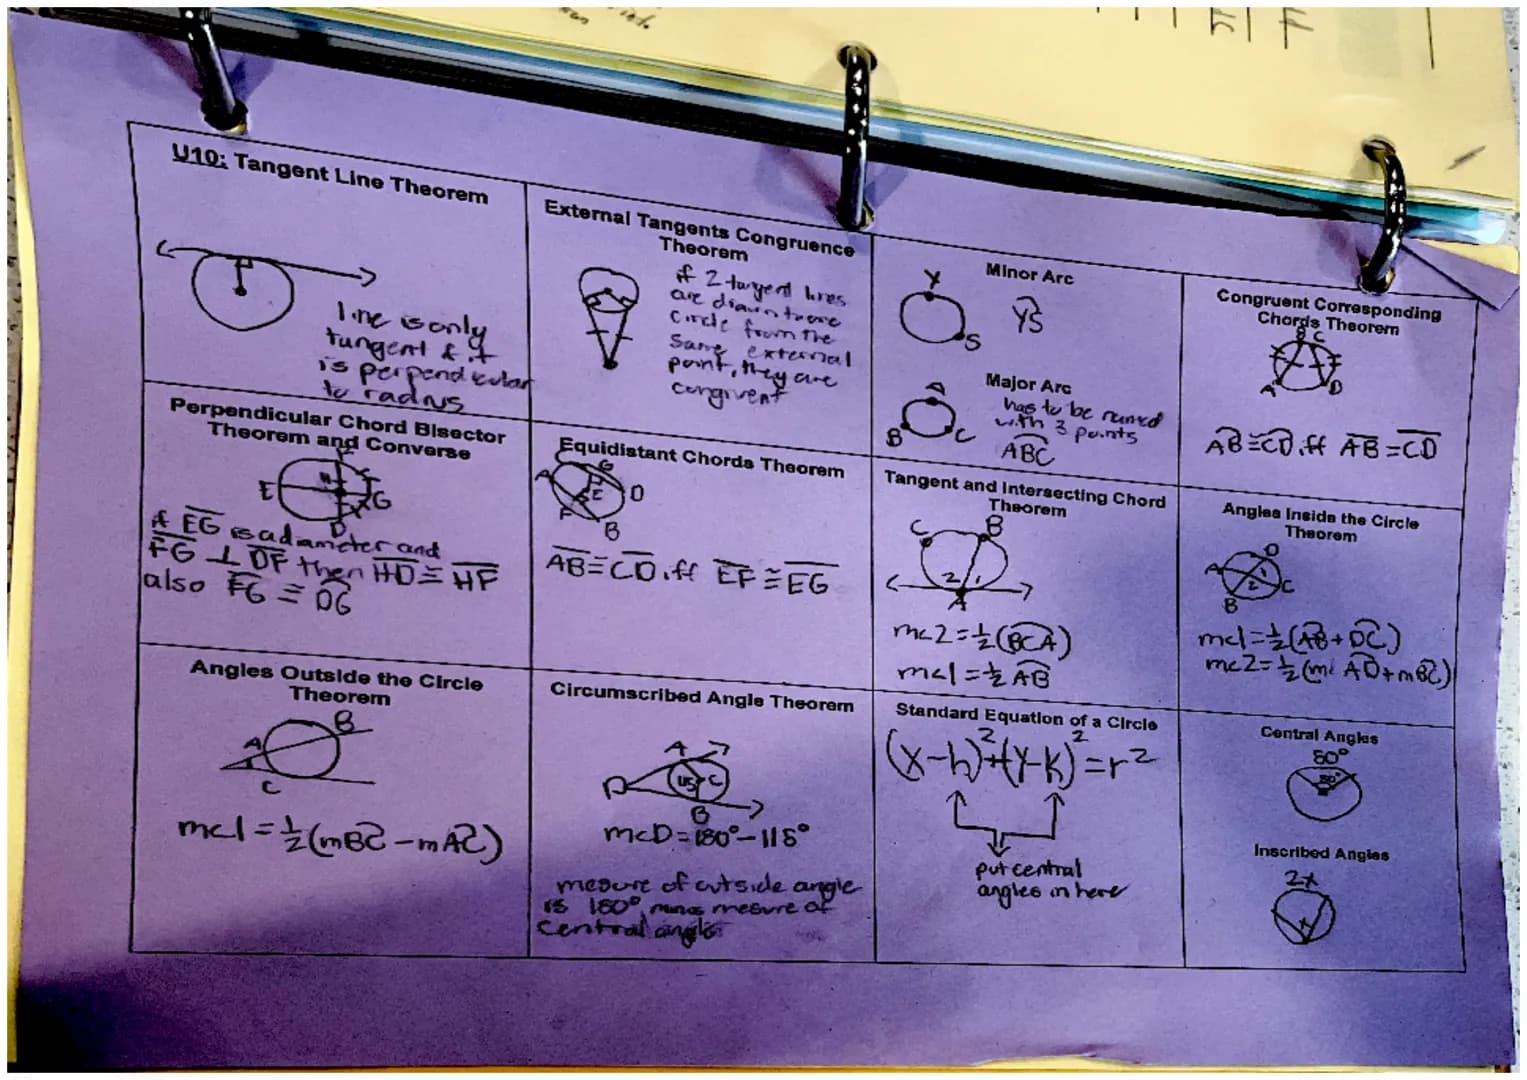 U10: Tangent Line Theorem
line is only
tangent if it
is perpendicular
to radius
External Tangents Congruence
Theorem
if 2 tangent lines
are drawn to one
circle from the
same external
point, they are
congruent
Minor Arc
Y
S
YS
Major Arc
has to be named
with 3 points
A
B
C
ABC
Congruent Corresponding
Chords Theorem
B C
A D
AB ≅ CD iff AB = CD
Perpendicular Chord Bisector
Theorem and Converse
F
E H G
D
if EG is a diameter and
EG ⊥ DF then HD ≅ HF
also FG ≅ DG
Equidistant Chords Theorem
A G
E D
F
B
AB ≅ CD iff EF ≅ EG
Tangent and Intersecting Chord
Theorem
C B
2 1
A
m<2 = ½(BCA)
m<1 = ½ AB
Angles Inside the Circle
Theorem
D
A 1
2 C
B
m<1 = ½(AB + DC)
m<2 = ½(m AD + mBC)
Angles Outside the Circle
Theorem
B
A
1
C
m<1 = ½(mBC − mAC)
Circumscribed Angle Theorem
A
D 115 C
B
m<D = 180° − 115°
mesure of outside angle
is 180° minus mesure of
central angle
Standard Equation of a Circle
(x−h)²+(y−k)²=r²
put central
angles in here
Central Angles
80°
80°
Inscribed Angles
2x
x